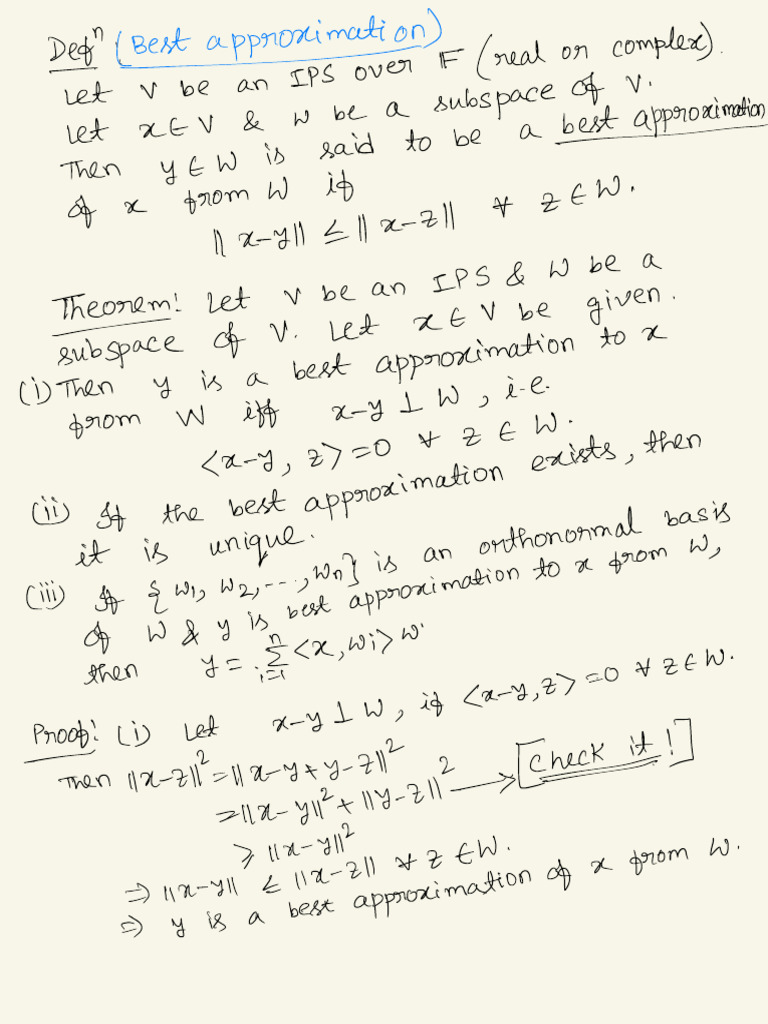 Defⁿ (Best approximation)
Let V be an IPS over 𝔽 (real or complex).
Let x ∈ V & W be a subspace of V.
Then y ∈ W is said to be a best approximation
of x from W if
||x-y|| ≤ ||x-z|| ∀ z ∈ W.
Theorem: Let V be an IPS & W be a
subspace of V. Let x ∈ V be given.
(i) Then y is a best approximation to x
from W iff x-y ⊥ W, i.e.
<x-y, z> = 0 ∀ z ∈ W.
(ii) If the best approximation exists, then
it is unique.
(iii) If {w₁, w₂, ..., wₙ} is an orthonormal basis
of W & y is best approximation to x from W,
then y = ∑ᵢ₌₁ⁿ <x, wᵢ> wᵢ
Proof: (i) Let x-y ⊥ W, if <x-y, z> = 0 ∀ z ∈ W.
Then ||x-z||² = ||x-y+y-z||²
= ||x-y||² + ||y-z||² → [check it!]
≥ ||x-y||²
⇒ ||x-y|| ≤ ||x-z|| ∀ z ∈ W.
⇒ y is a best approximation of x from W.